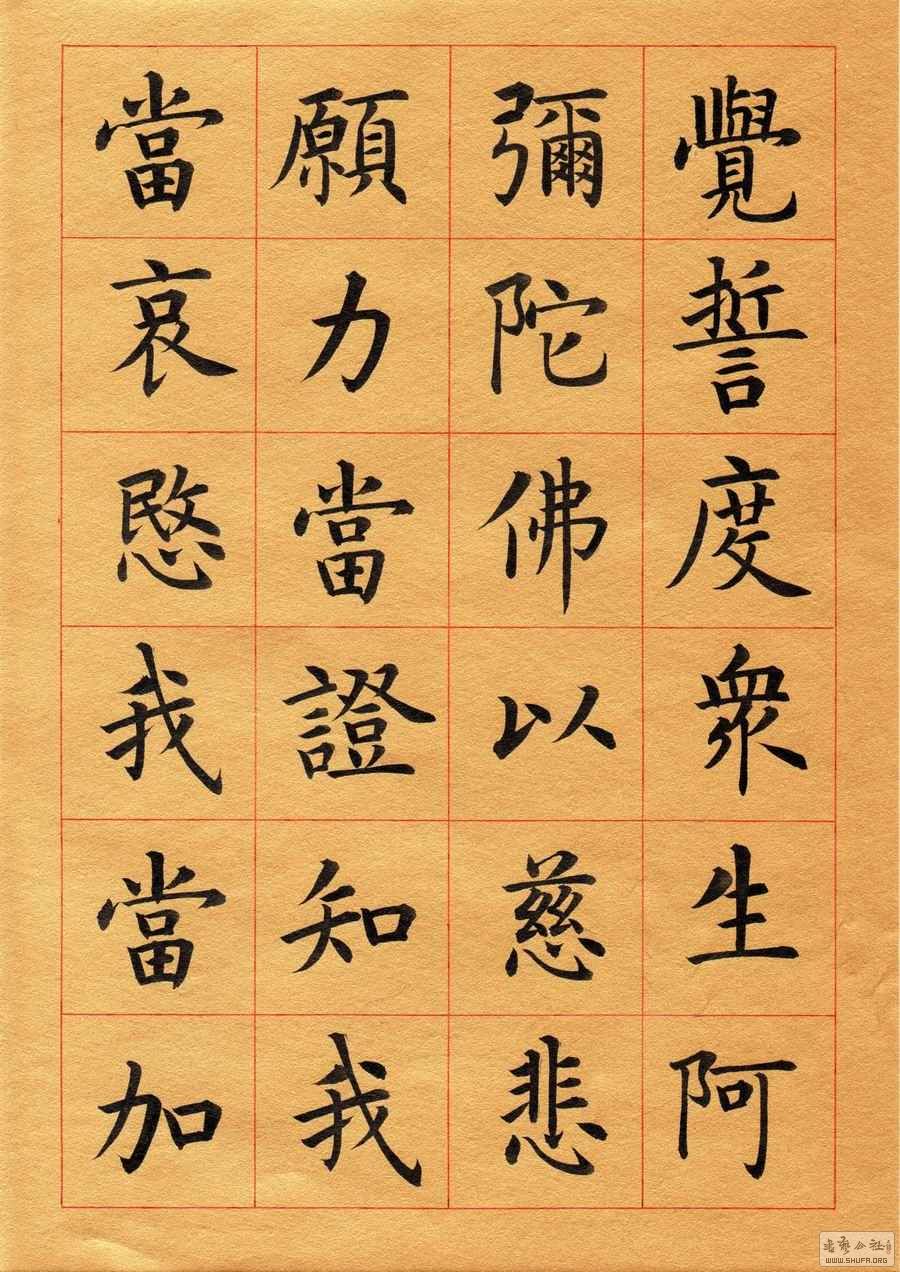 覺誓度衆生阿
彌陀佛以慈悲
願力當證知我
當哀愍我當加
WWW.SHUFA.ORG